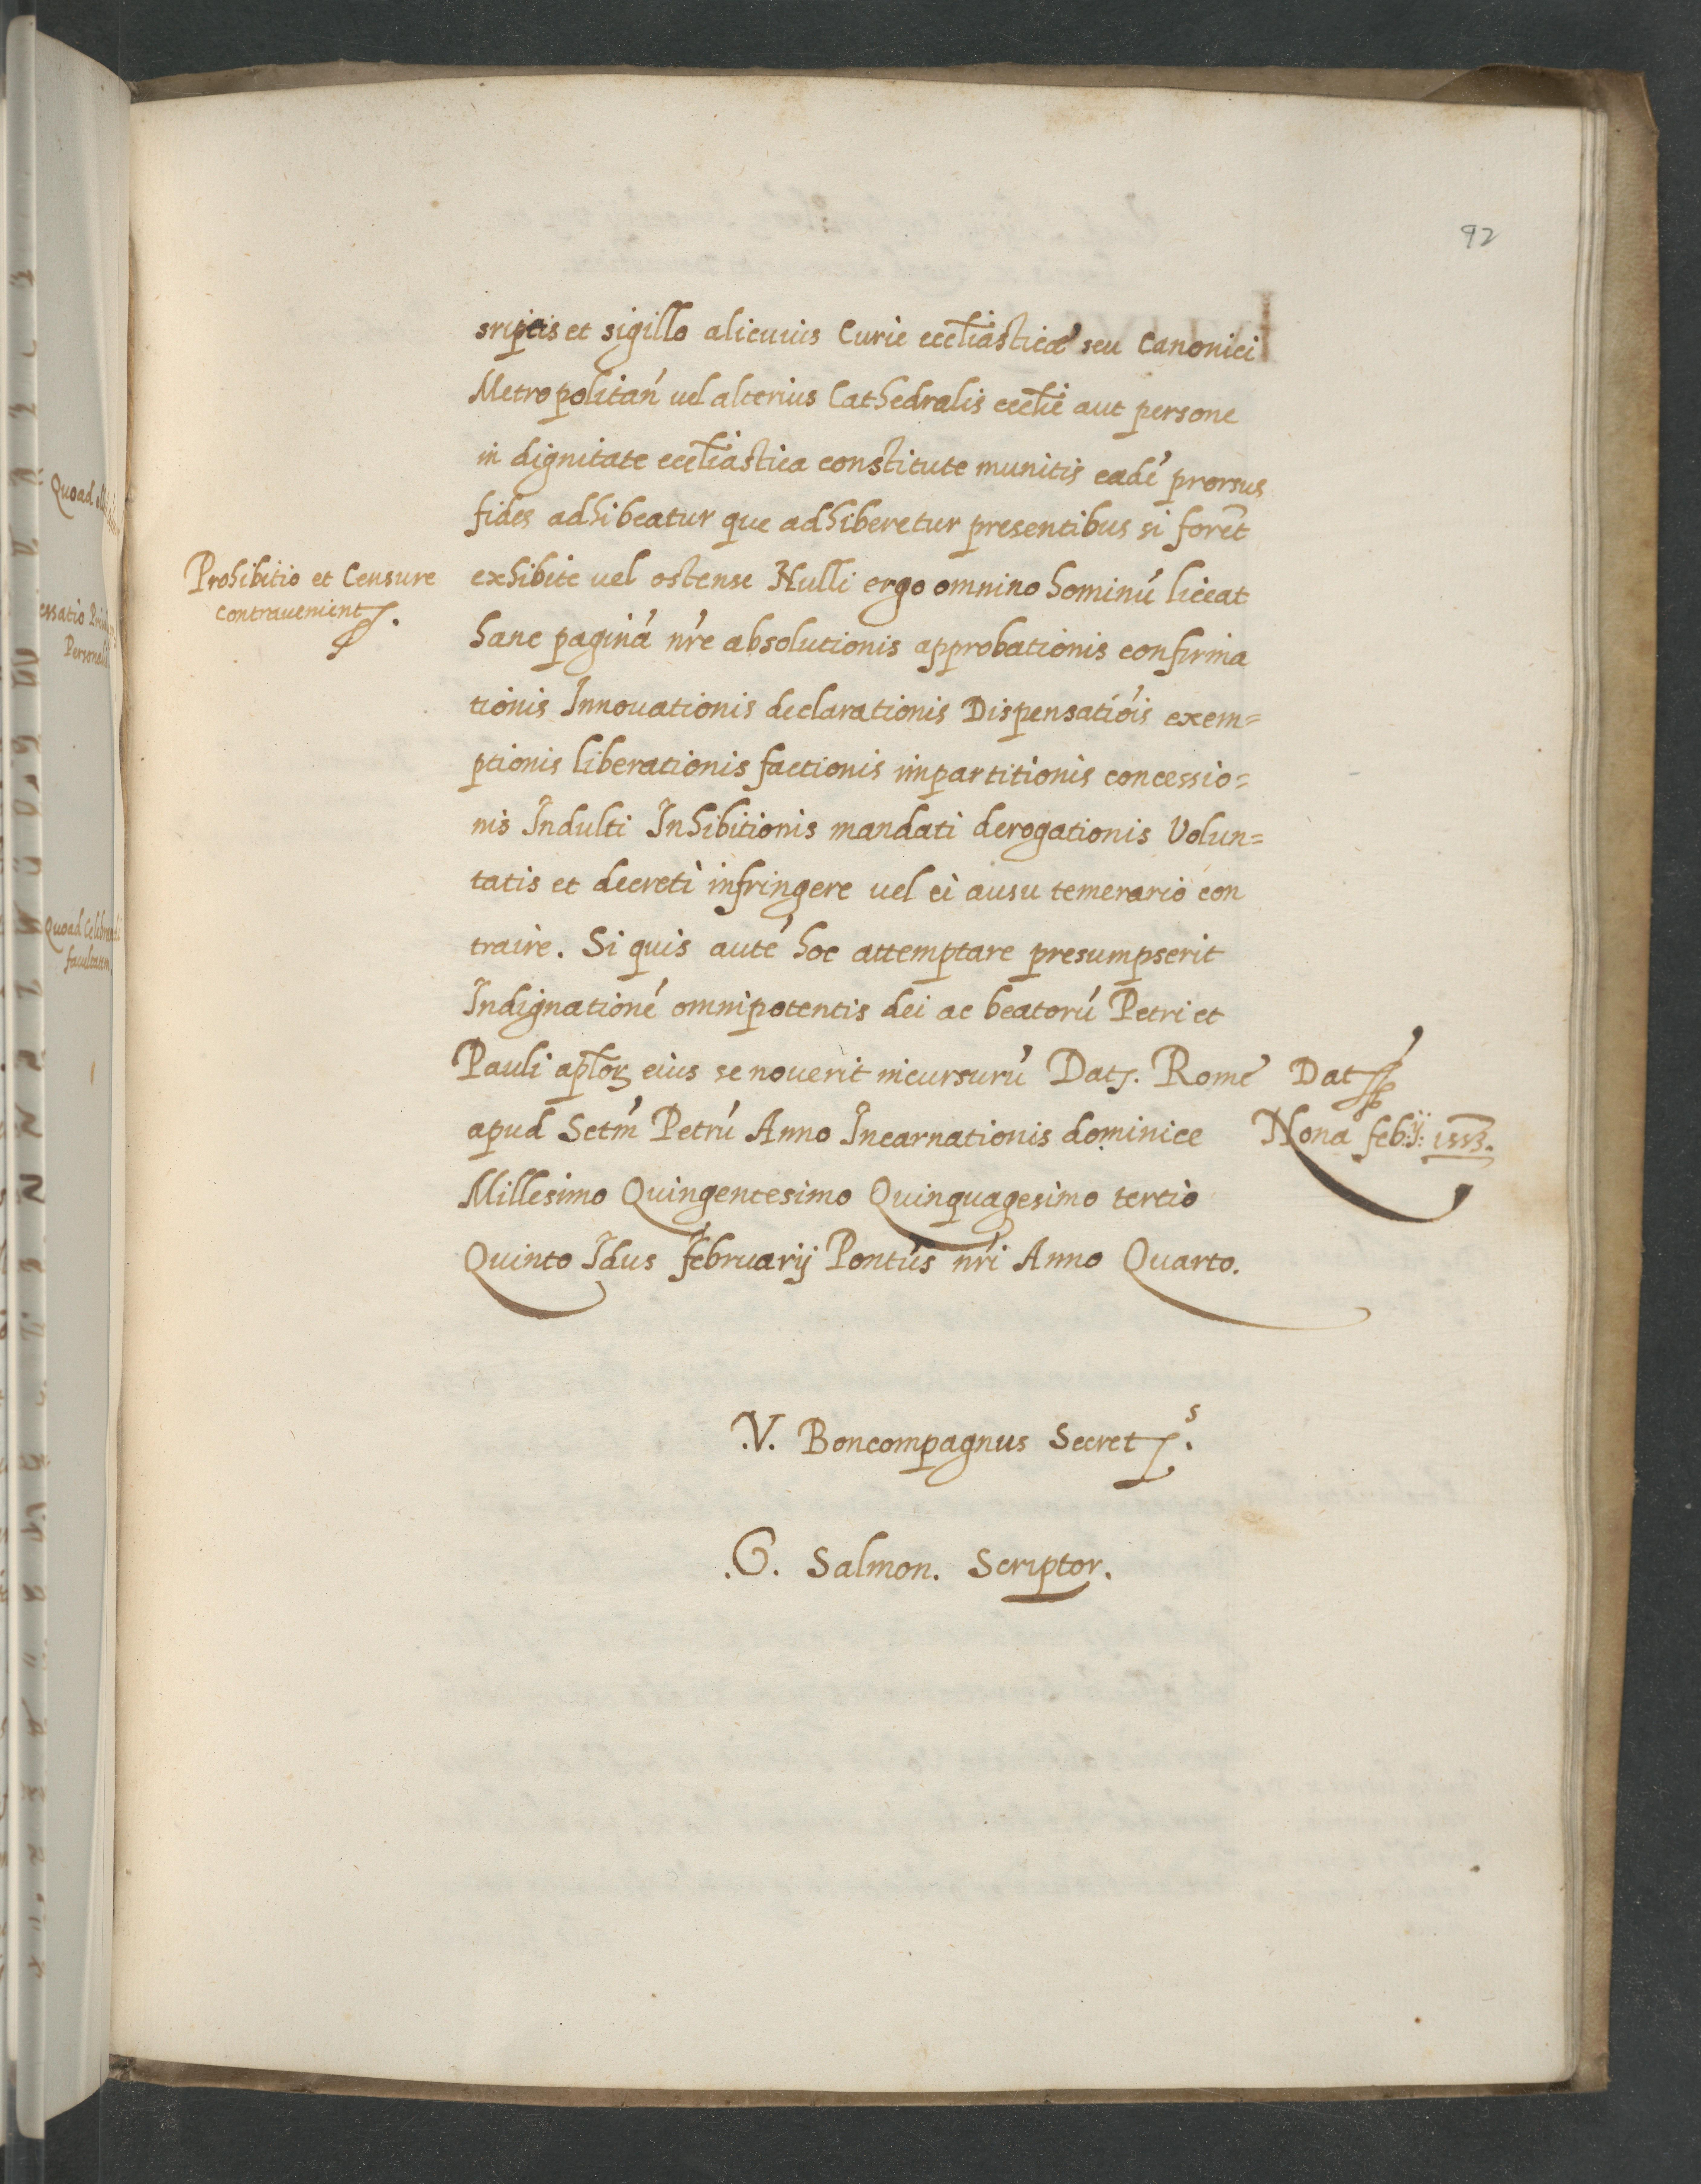 92
sriptis et sigillo alicuius Curie eccl̃iasticæ seu Canonici
Metropolitań vel alterius Cathedralis eccl̃ie aut persone
in dignitate eccl̃iastica constitute munitis eadé prorsus
fides adhibeatur que adhiberetur presentibus si forēt
Prohibitio et Censure
contravenient
exhibite vel ostense Nulli ergo omnino hominú liceat
hanc paginá nŕe absolutionis approbationis confirma
tionis Innovationis declarationis Dispensatióis exem=
ptionis liberationis factionis impartitionis concessio=
nis Indulti Inhibitionis mandati derogationis Volun=
tatis et decreti infringere vel ei ausu temerario con
traire. Si quis auté hoc attemptare presumpserit
Indignationé omnipotentis dei ac beatorú Petri et
Pauli apl̃oꝝ eius se noverit incursurú Dat. Rome
Dat
apud Sctḿ Petrú Anno Incarnationis dominice
Nona feb:ij: 1553.
Millesimo Quingentesimo Quinquagesimo tertio
Quinto Idus februarij Pontús nŕi Anno Quarto.
.V. Boncompagnus Secret.s
.G. Salmon. Scriptor.
Quoad
Quoad
facultatem